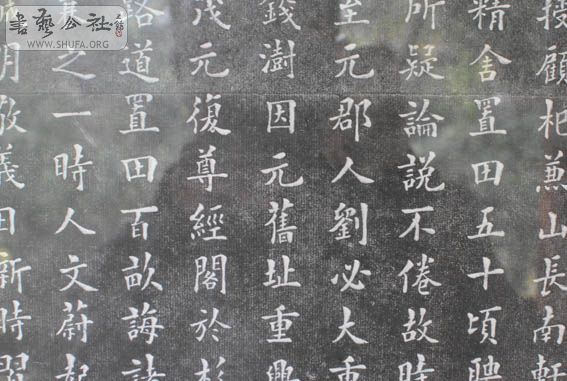 授顧杞兼山長南軒
精舍置田五十頃聘
所疑論說不倦故時
至元郡人劉必大重
錢澍因元舊址重興
茂元復尊經閣於杉
道置田百畝誨諸
之一時人文蔚起
月敬義田新時習
書藝公社
WWW.SHUFA.ORG